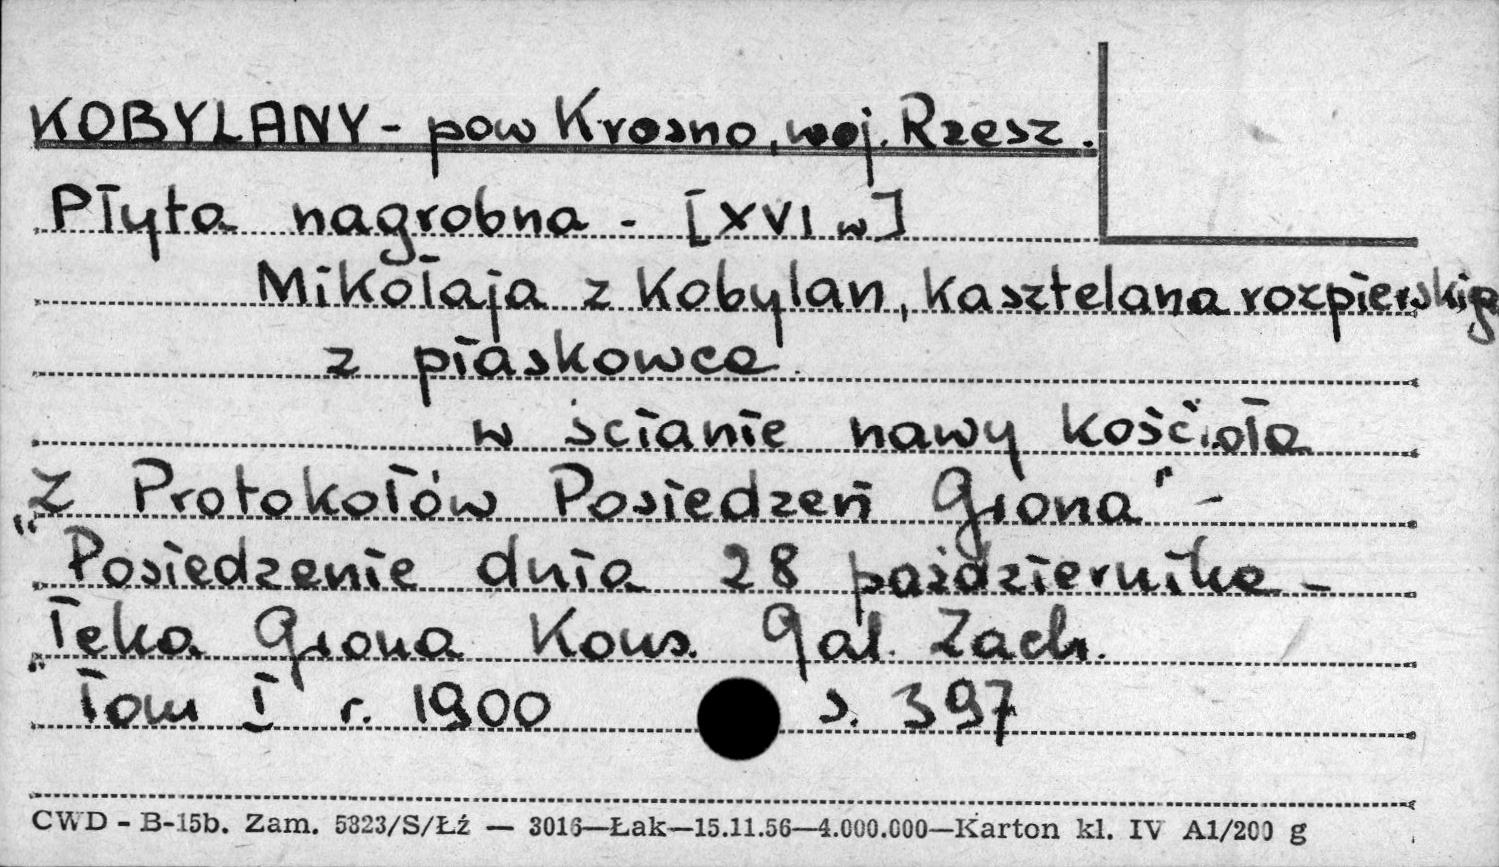 KOBYLANY - pow Krosno, woj. Rzesz.
Płyta nagrobna - [XVI w]
Mikołaja z Kobylan, kasztelana rozpierskieg
z piaskowca.
w ścianie nawy kościoła
"Z Protokołów Posiedzeń Grona" -
Posiedzenie dnia 28 października -
"Teka Grona Kons. Gal. Zach.
Tom I r. 1900 s. 397
CWD - B-15b. Zam. 5823/S/Łź — 3016—Łak—15.11.56—4.000.000—Karton kl. IV A1/200 g